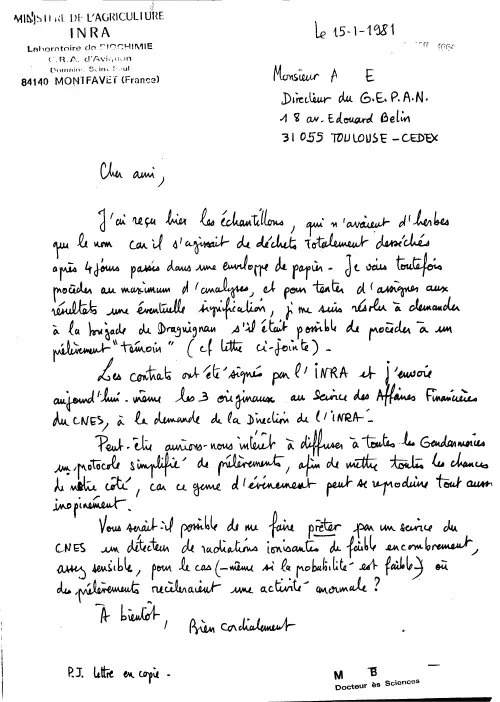 MINISTÈRE DE L'AGRICULTURE
INRA
Laboratoire de BIOCHIMIE
C.R.A. d'Avignon
Domaine Saint Paul
84140 MONTFAVET (France)
Le 15-1-1981
Monsieur A E
Directeur du G.E.P.A.N.
18 av. Edouard Belin
31055 TOULOUSE - CEDEX
Cher ami,
J'ai reçu hier les échantillons, qui n'avaient d'herbes
que le nom car il s'agissait de déchets totalement desséchés
après 4 jours passés dans une enveloppe de papier - Je vais toutefois
procéder au maximum d'analyses, et pour tenter d'assigner aux
résultats une éventuelle signification, je me suis résolu à demander
à la brigade de Draguignan s'il était possible de procéder à un
prélèvement "témoin" (cf lettre ci-jointe) -
Les contrats ont été signés par l'INRA et j'envoie
aujourd'hui-même les 3 originaux au Service des Affaires Financières
du CNES, à la demande de la Direction de l'INRA -
Peut-être aurions-nous intérêt à diffuser à toutes les Gendarmeries
un protocole simplifié de prélèvements, afin de mettre toutes les chances
de notre côté, car ce genre d'événement peut se reproduire tout aussi
inopinément.
Vous serait-il possible de me faire prêter par un service du
CNES un détecteur de radiations ionisantes de faible encombrement,
assez sensible, pour le cas (- même si la probabilité est faible) où
des prélèvements recèleraient une activité anormale ?
A bientôt,
Bien cordialement
P.J. lettre en copie -
M B
Docteur ès Sciences